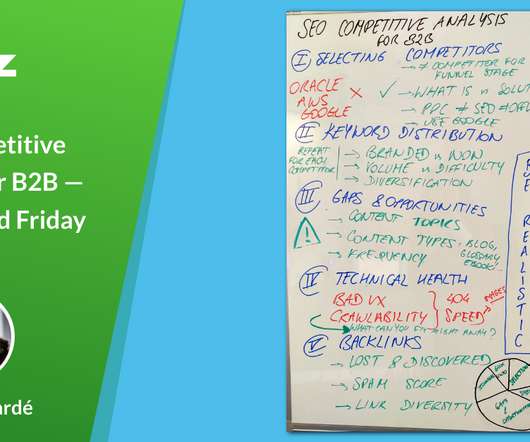 z
etitive
r B2B —
d Friday
ardé
SEO COMPETITIVE ANALYSIS
FOR B2B
I SELECTING COMPETITORS
→ ≠ COMPETITOR FOR
FUNNEL STAGE
ORACLE
AWS
GOOGLE
X
✓ → WHAT IS vs SOLUT
→ PPC ≠ SEO ≠ OFFL
→ USE GOOGLE
II KEYWORD DISTRIBUTION
REPEAT
FOR EACH
COMPETITOR
→ BRANDED vs NON
→ VOLUME vs DIFFICULTY
→ DIVERSIFICATION
III GAPS & OPPORTUNITIES
!
→ CONTENT TOPICS
→ CONTENT TYPES: BLOG,
GLOSSARY
EBOOK...
→ FREQUENCY
IV TECHNICAL HEALTH
BAD UX
CRAWLABILITY
404
SPEED → IMAGES
WHAT CAN YOU FIX RIGHT AWAY?
V BACKLINKS
→ LOST & DISCOVERED
→ SPAM SCORE
→ LINK DIVERSITY
BE REALISTIC